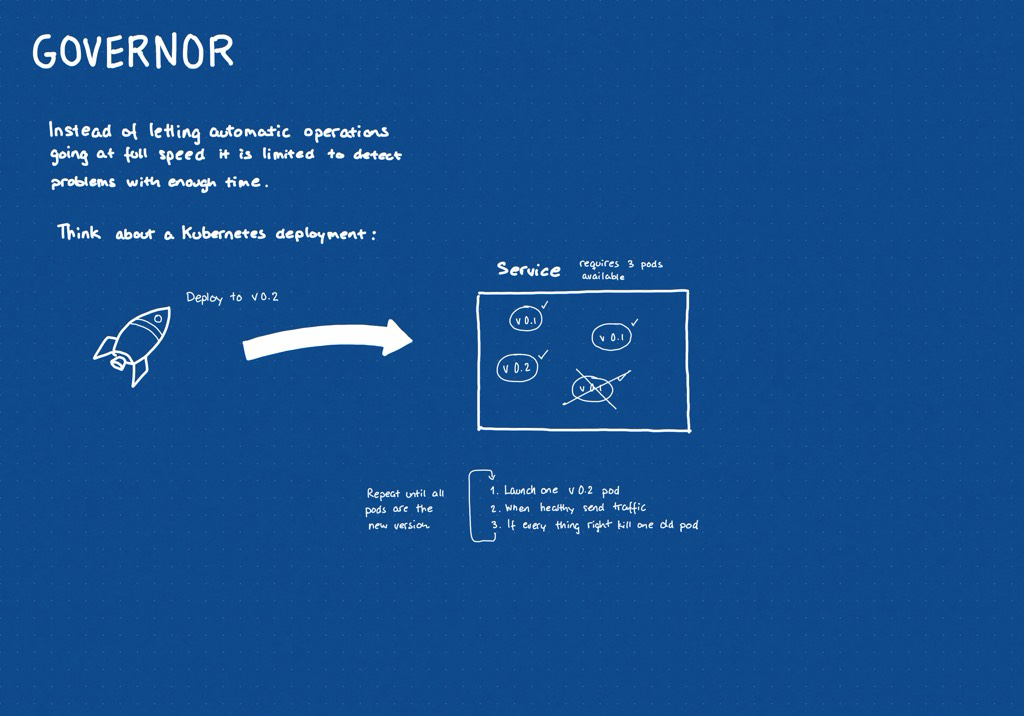 GOVERNOR
Instead of letting automatic operations
going at full speed it is limited to detect
problems with enough time.
Think about a Kubernetes deployment:
Service
requires 3 pods
available
Deploy to v0.2
v 0.1
v 0.1
v 0.2
v 0.1
Repeat until all
pods are the
new version
1. Launch one v 0.2 pod
2. When healthy send traffic
3. If every thing right kill one old pod